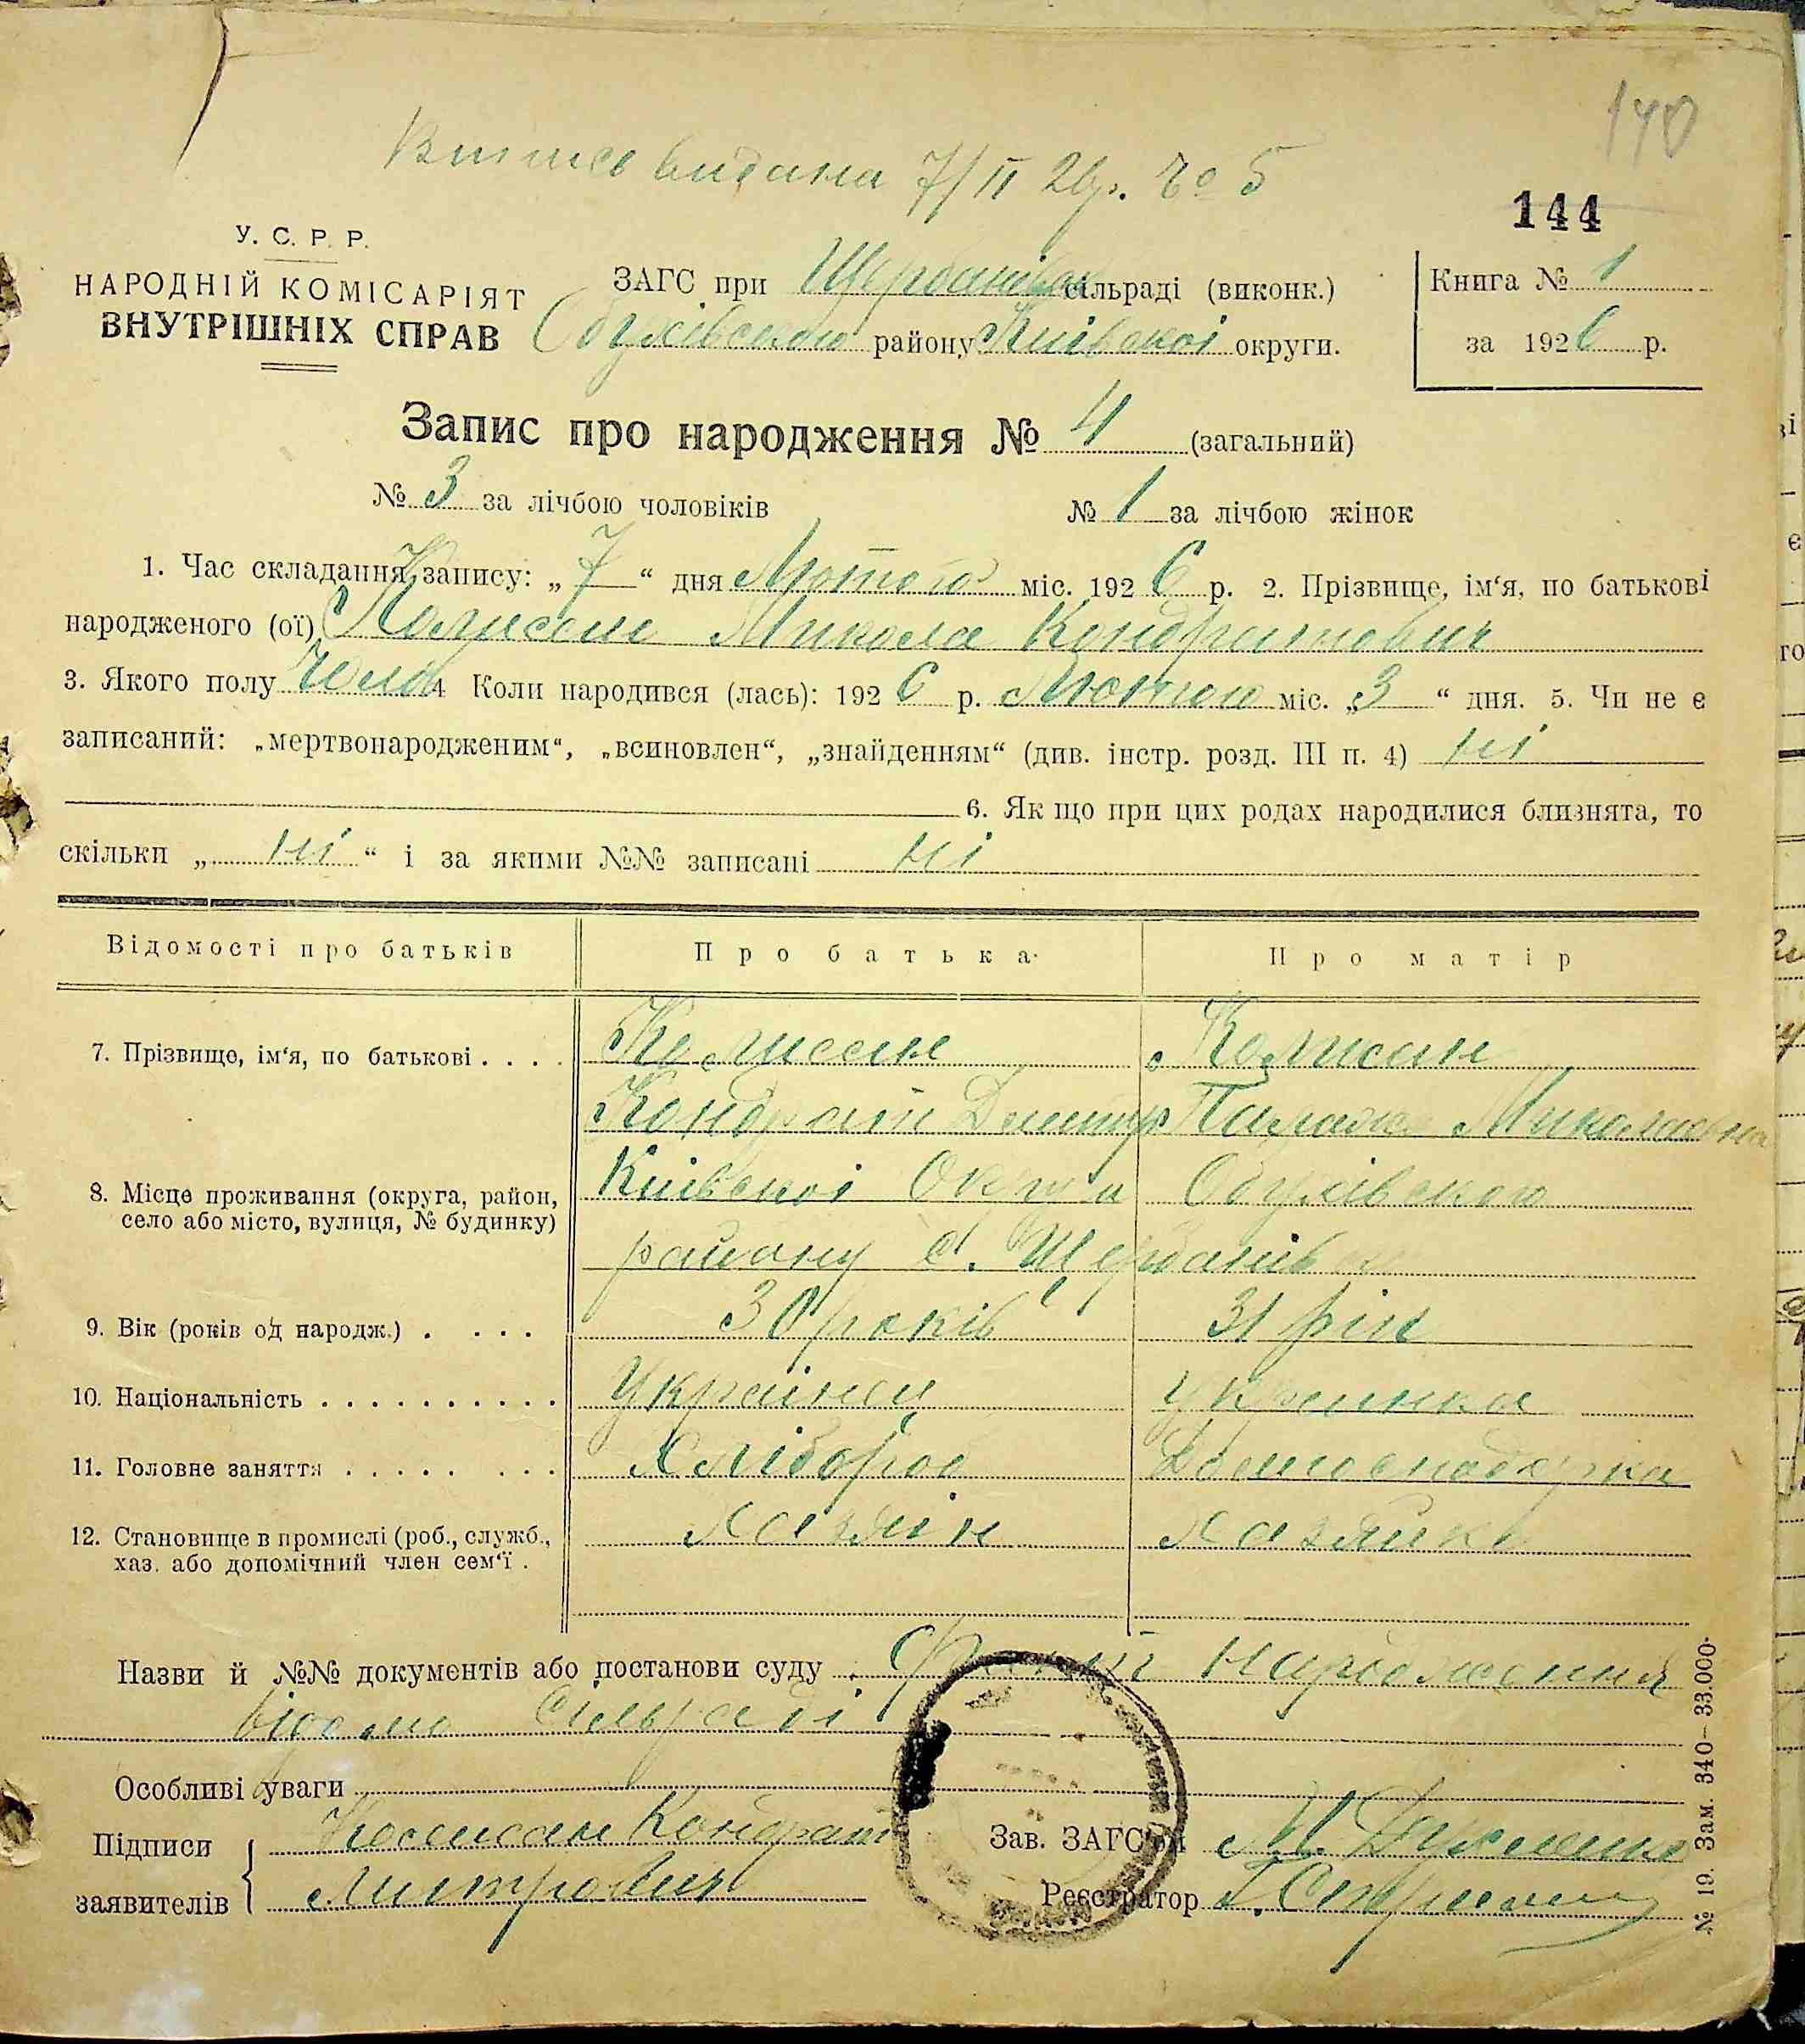 140
Витись видана 7/II 26р. № 5
144
У. С. Р. Р.
НАРОДНІЙ КОМІСАРІЯТ
ВНУТРІШНІХ СПРАВ
ЗАГС при Щербанівск сільраді (виконк.)
Обухівського району Київської округи.
Книга № 1
за 1926 р.
Запис про народження № 4 (загальний)
№ 3 за лічбою чоловіків № 1 за лічбою жінок
1. Час складання запису: „ 7 “ дня Лютого міс. 1926 р. 2. Прізвище, ім‘я, по батькові
народженого (ої) Колисан Микола Кондратович
3. Якого полу Чолов 4 Коли народився (лась): 1926 р. Лютого міс. „3 “ дня. 5. Чи не є
записаний: „мертвонародженим“, „всиновлен“, „знайденням“ (див. інстр. розд. III п. 4) ні
6. Як що при цих родах народилися близнята, то
скільки „ ні “ і за якими №№ записані ні
Відомості про батьків Про батька Про матір
7. Прізвище, ім‘я, по батькові . . . . Колисан Колисан
Кондрат Дмитр Параска Миколаєвна
8. Місце проживання (округа, район, село або місто, вулиця, № будинку) Київської Округи Обухівського
району с. Щербанівк
9. Вік (років од народж.) . . . . 30 років 31 рік
10. Національність . . . . . . . . . . Українец Українка
11. Головне заняття . . . . . . . . Хлібороб
12. Становище в промислі (роб., служб., хаз. або допомічний член сем‘ї . хазяін хазяйка
Назви й №№ документів або постанови суду . Факт народження
відомо Сільраді
Особливі уваги
Підписи заявителів { Колисан Кондрат
Митрович
Зав. ЗАГС‘ом М.
Реєстратор
№ 19. Зам. 340—33.000.